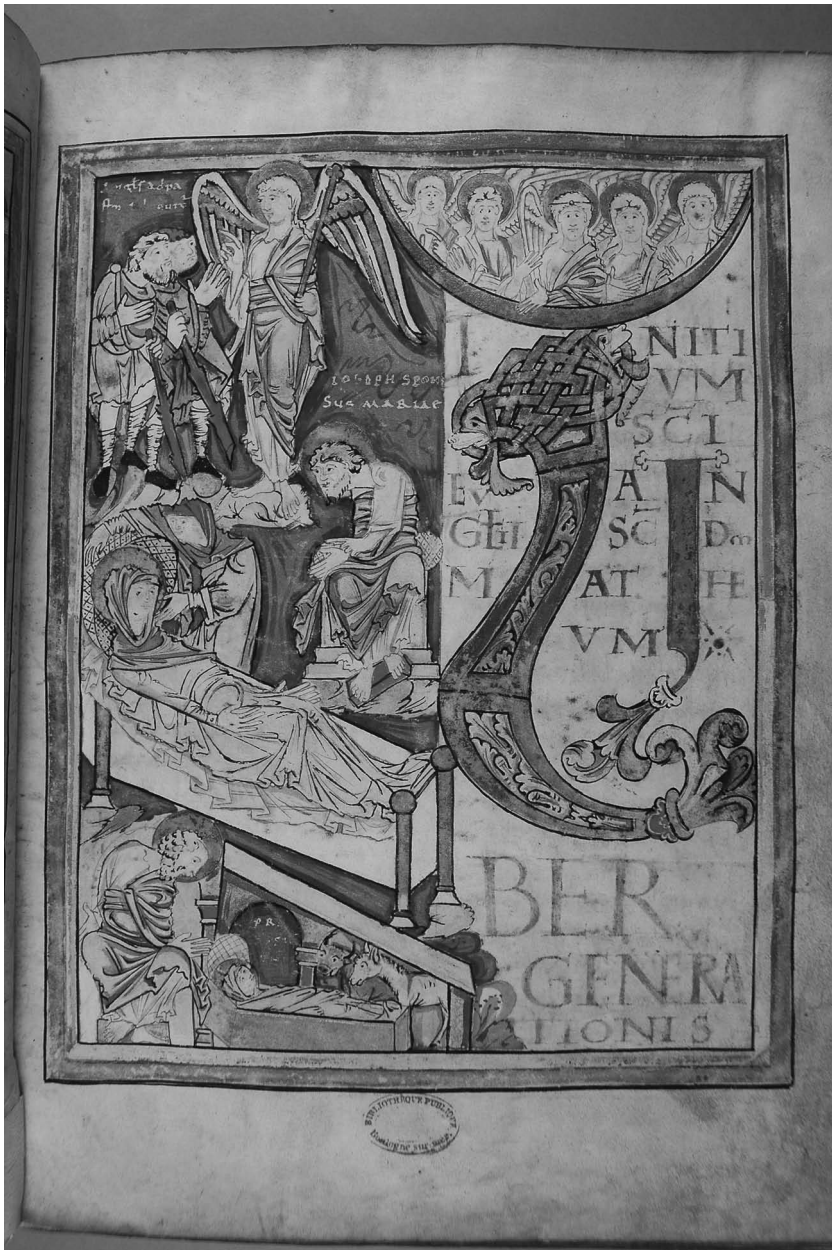 IOSEPH SPON
SUS MARIAE
INITI
VM
SCI
EV AN
GLII SCDM
M AT HE
VM
LIBER
GENERA
TIONIS
BIBLIOTHÈQUE PUBLIQUE
Boulogne sur mer